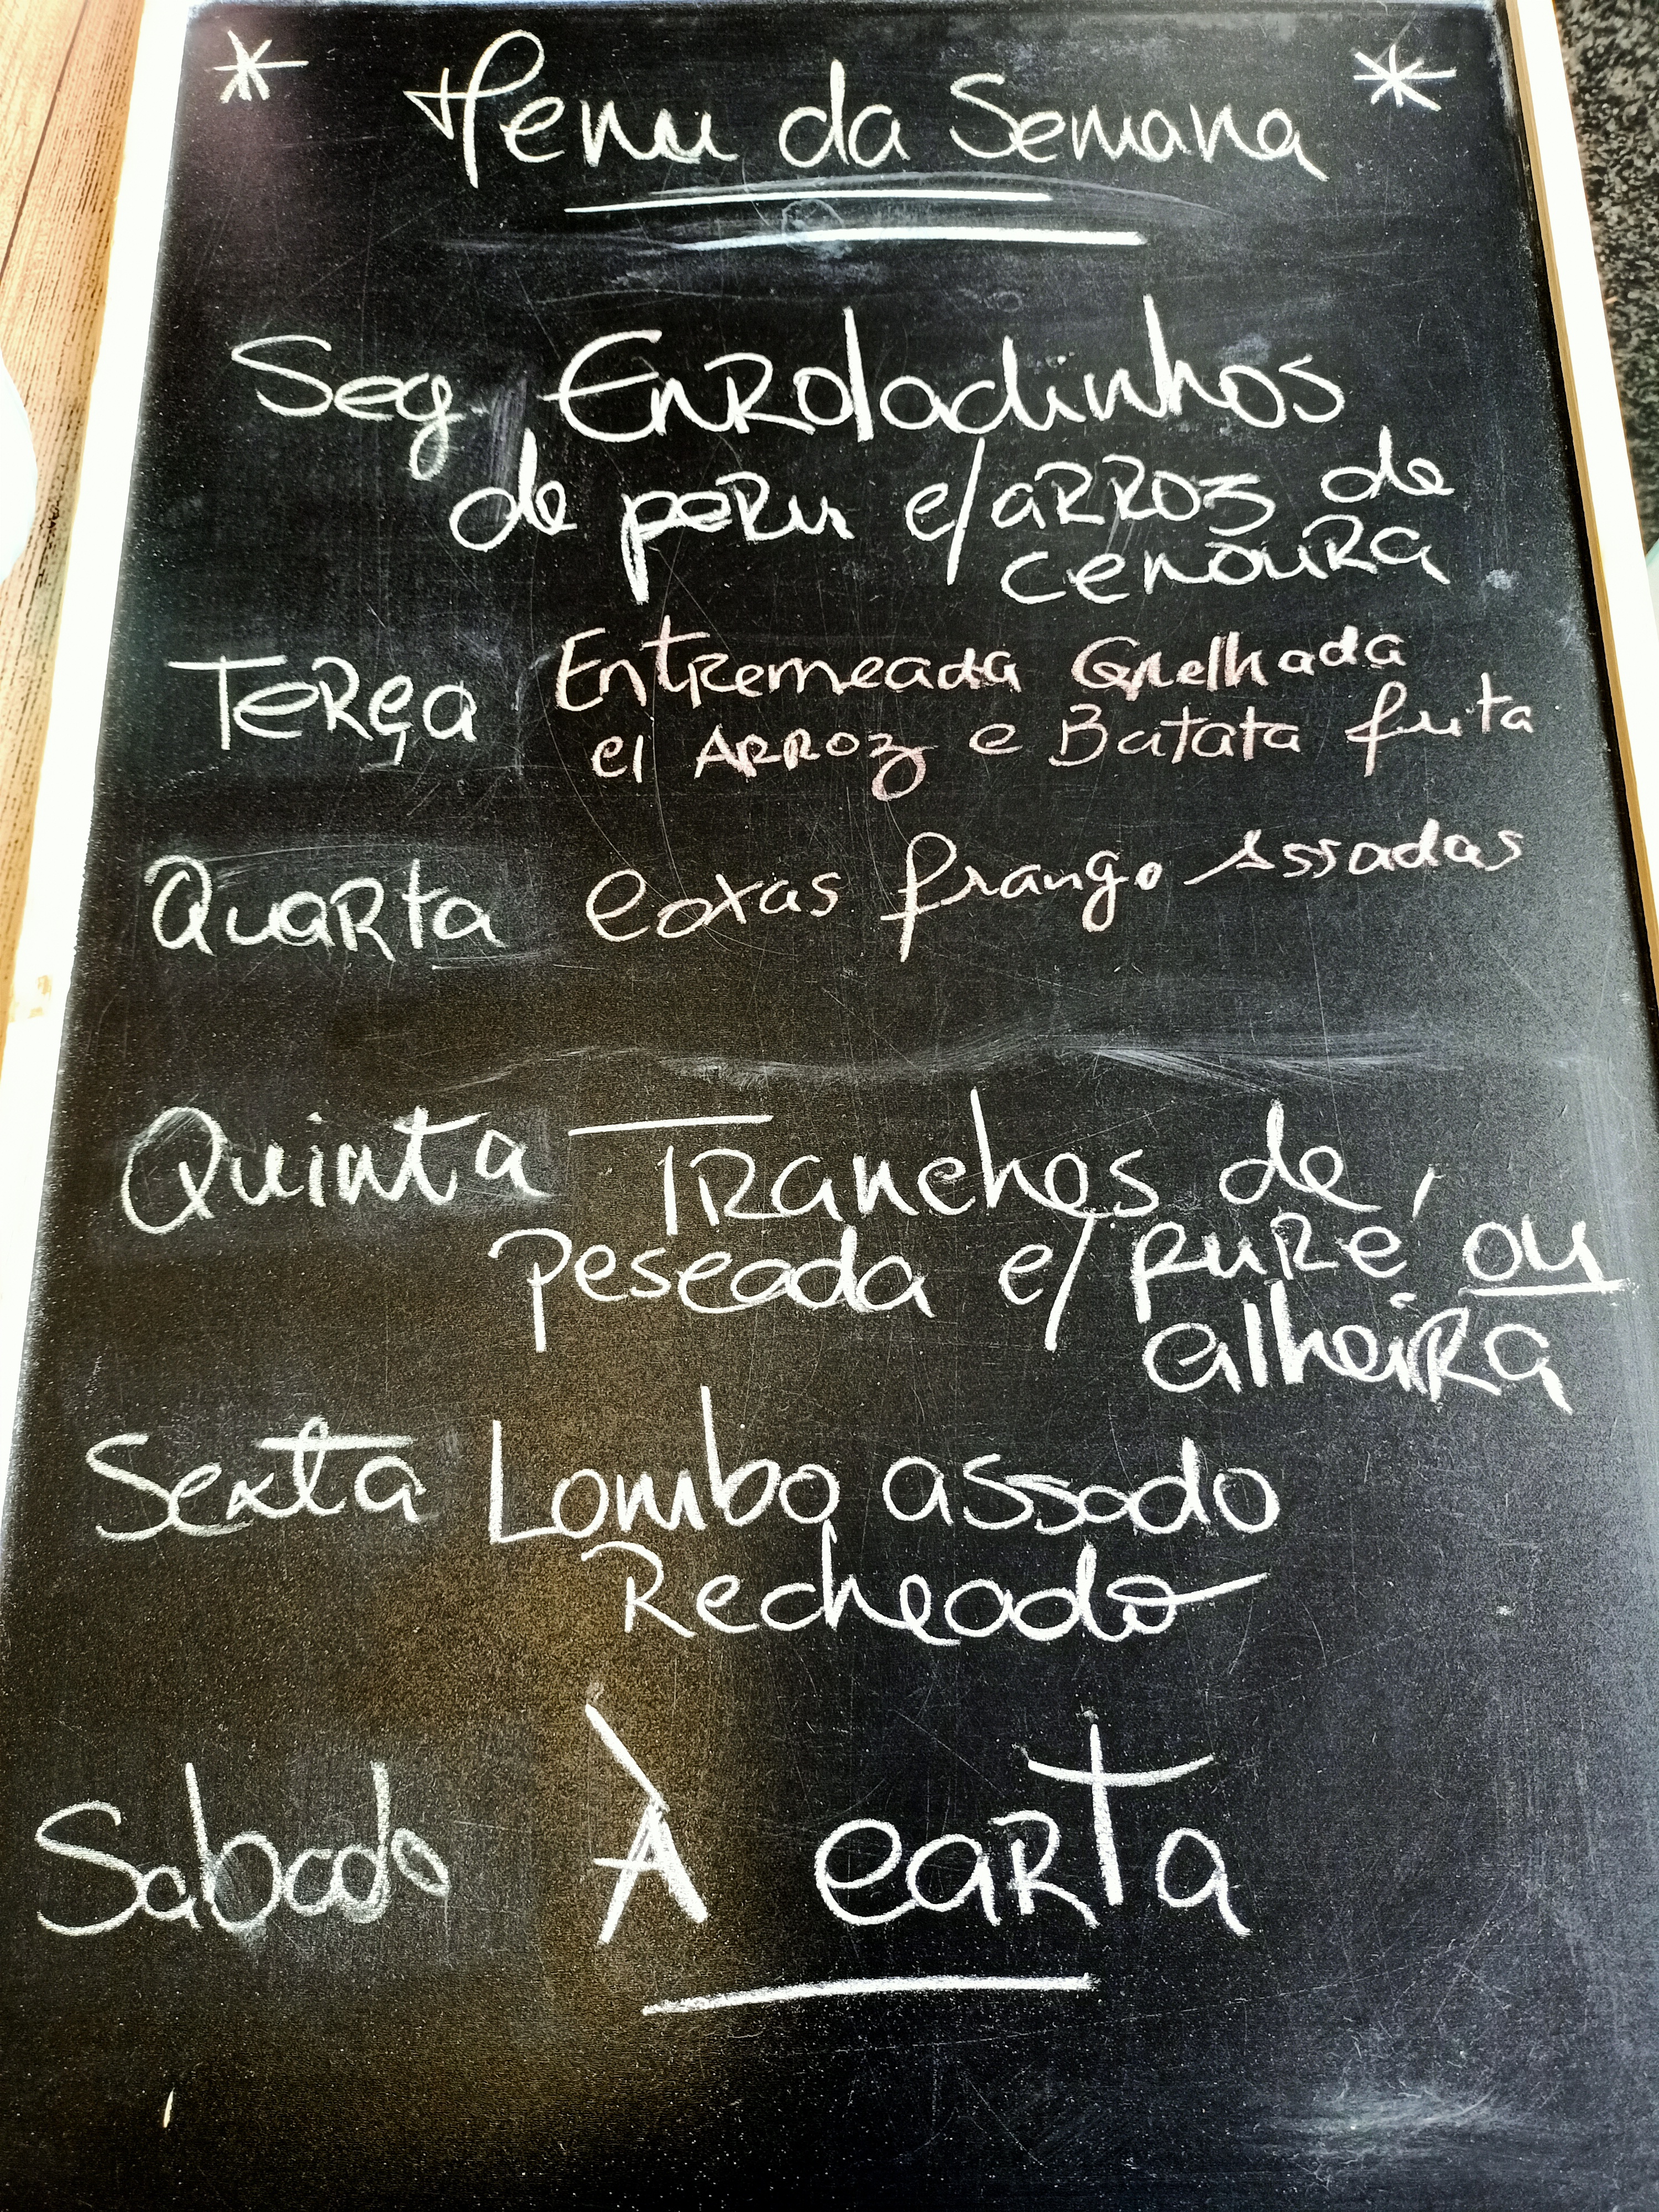 * Menu da Semana *
Seg. Enroladinhos
de peru c/ arroz de
cenoura
Terça Entremeada Grelhada
c/ Arroz e Batata frita
Quarta Coxas frango Assadas
Quinta Tranches de
pescada c/ puré ou
alheira
Sexta Lombo assado
Recheado
Sabado À carta